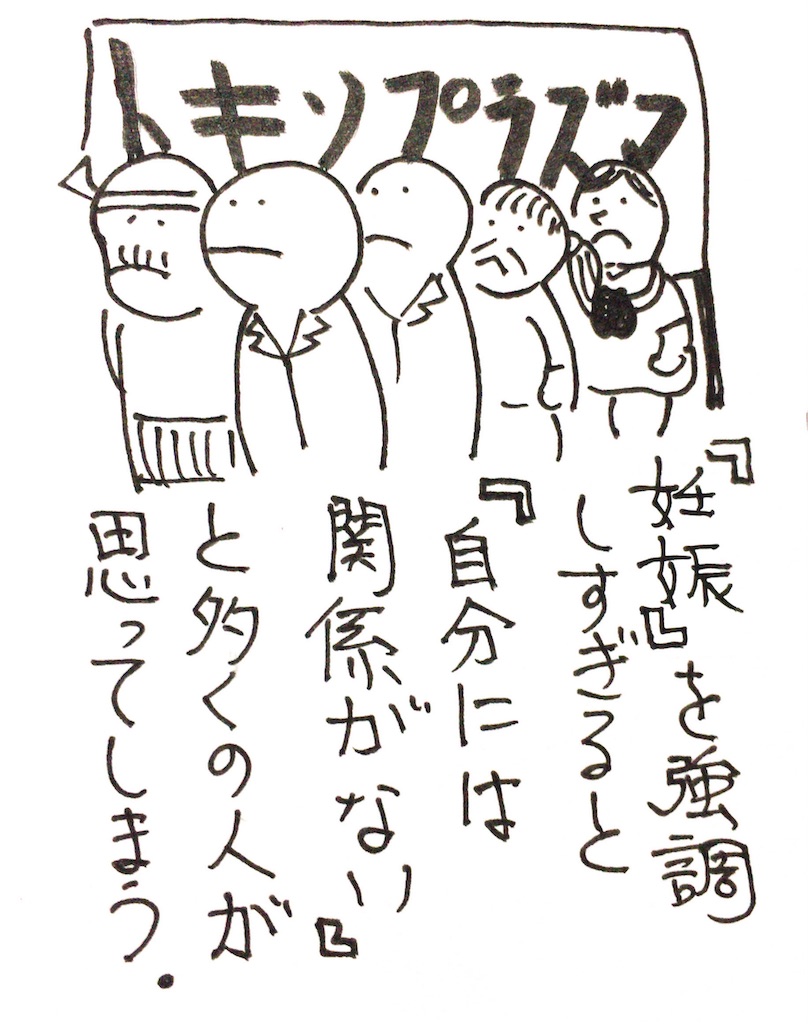 トキソプラズマ
『妊娠』を強調
しすぎると
『自分には
関係がない』
と多くの人が
思ってしまう.